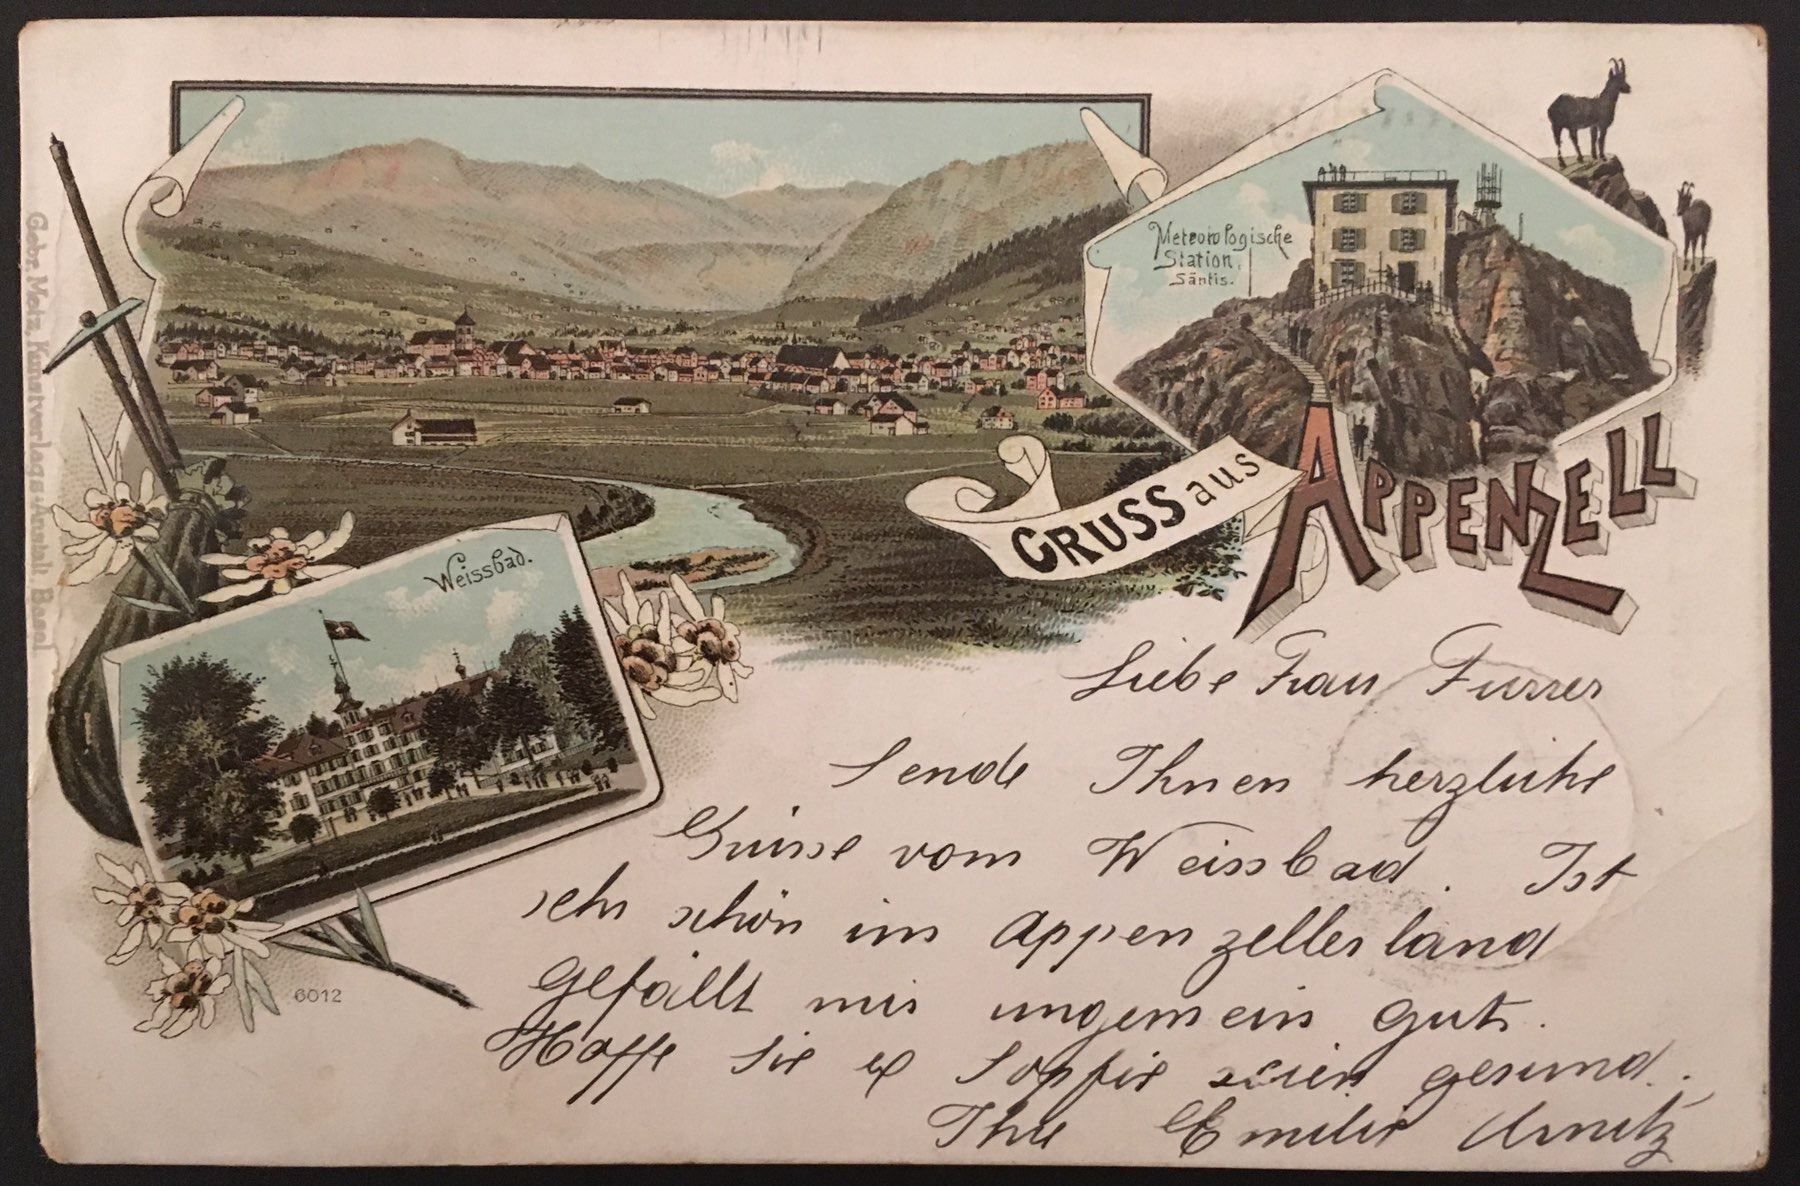 Meteorologische
Station,
Säntis.
Gebr. Metz, Kunstverlags-Anstalt. Basel
GRUSS aus
APPENZELL
Weissbad.
6012
Liebe Frau Furrer
Sende Ihnen herzliche
Grüsse vom Weissbad. Ist
sehr schön im Appenzellerland
Gefällt mir ungemein gut.
Hoffe Sie & Sophie seien gesund.
Ihre Emilie